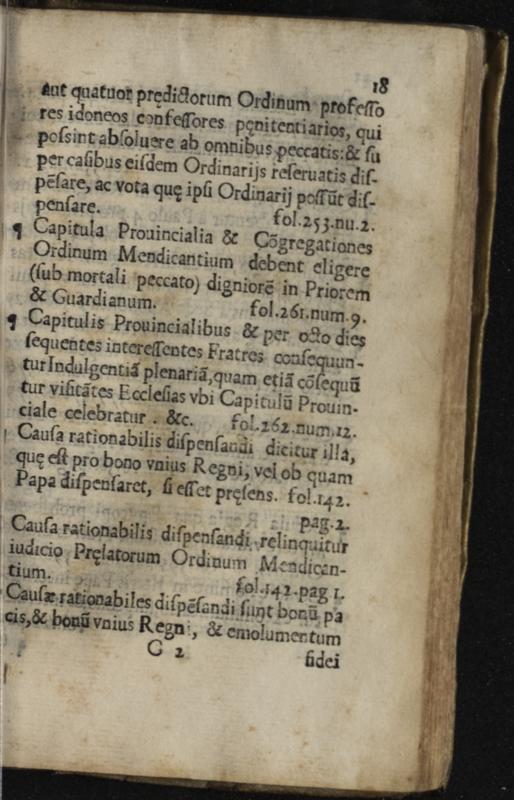 18
aut quatuor prędictorum Ordinum professo
res idoneos confessores pęnitentiarios, qui
possint absoluere ab omnibus peccatis: & su
per casibus eisdem Ordinarijs reseruatis dis-
pẽsare, ac vota quę ipsi Ordinarij possũt dis-
pensare. fol.253.nu.2.
¶ Capitula Prouincialia & Cõgregationes
Ordinum Mendicantium debent eligere
(sub mortali peccato) digniorẽ in Priorem
& Guardianum. fol.261.num.9.
¶ Capitulis Prouincialibus & per octo dies
sequentes interessentes Fratres consequun-
tur Indulgentiã plenariã, quam etiã cõsequũ
tur visitãtes Ecclesias vbi Capitulũ Prouin-
ciale celebratur . &c. fol.262.num.12.
Causa rationabilis dispensandi dicitur illa,
quę est pro bono vnius Regni, vel ob quam
Papa dispensaret, si esset pręsens. fol.142.
pag.2.
Causa rationabilis dispensandi relinquitur
iudicio Pręlatorum Ordinum Mendican-
tium. fol.142.pag 1.
Causæ rationabiles dispẽsandi sunt bonũ pa
cis, & bonũ vnius Regni, & emolumentum
G 2 fidei